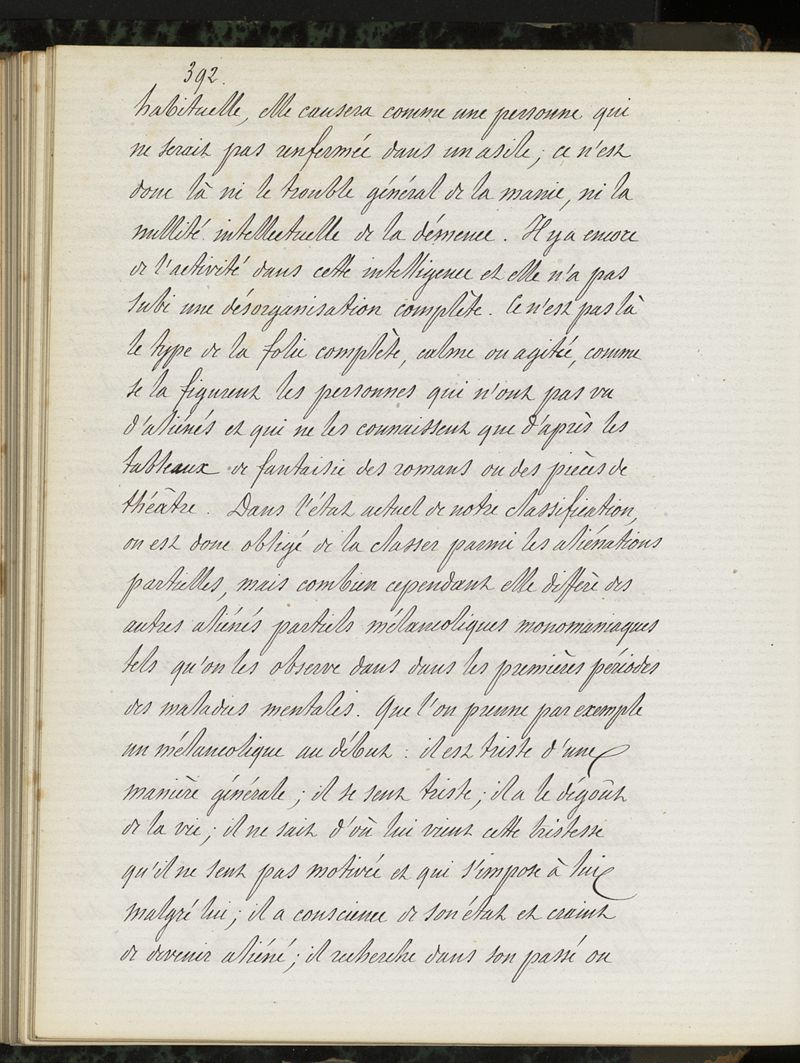 392.
habituelle, elle causera comme une personne qui
ne serait pas renfermée dans un asile; ce n'est
donc là ni le trouble général de la manie, ni la
nullité intellectuelle de la démence. Il y a encore
de l'activité dans cette intelligence et elle n'a pas
subi une désorganisation complète. Ce n'est pas là
le type de la folie complète, calme ou agitée, comme
se la figurent les personnes qui n'ont pas vu
d'aliénés et qui ne les connaissent que d'après les
tableaux de fantaisie des romans ou des pièces de
théâtre. Dans l'état actuel de notre classification,
on est donc obligé de la classer parmi les aliénations
partielles, mais combien cependant elle diffère des
autres aliénés partiels mélancoliques monomaniaques
tels qu'on les observe dans dans les premières périodes
des maladies mentales. Que l'on prenne par exemple
un mélancolique au début : il est triste d'une
manière générale; il se sent triste; il a le dégoût
de la vie; il ne sait d'où lui vient cette tristesse
qu'il ne sent pas motivée et qui s'impose à lui
malgré lui; il a conscience de son état et craint
de devenir aliéné; il recherche dans son passé ou